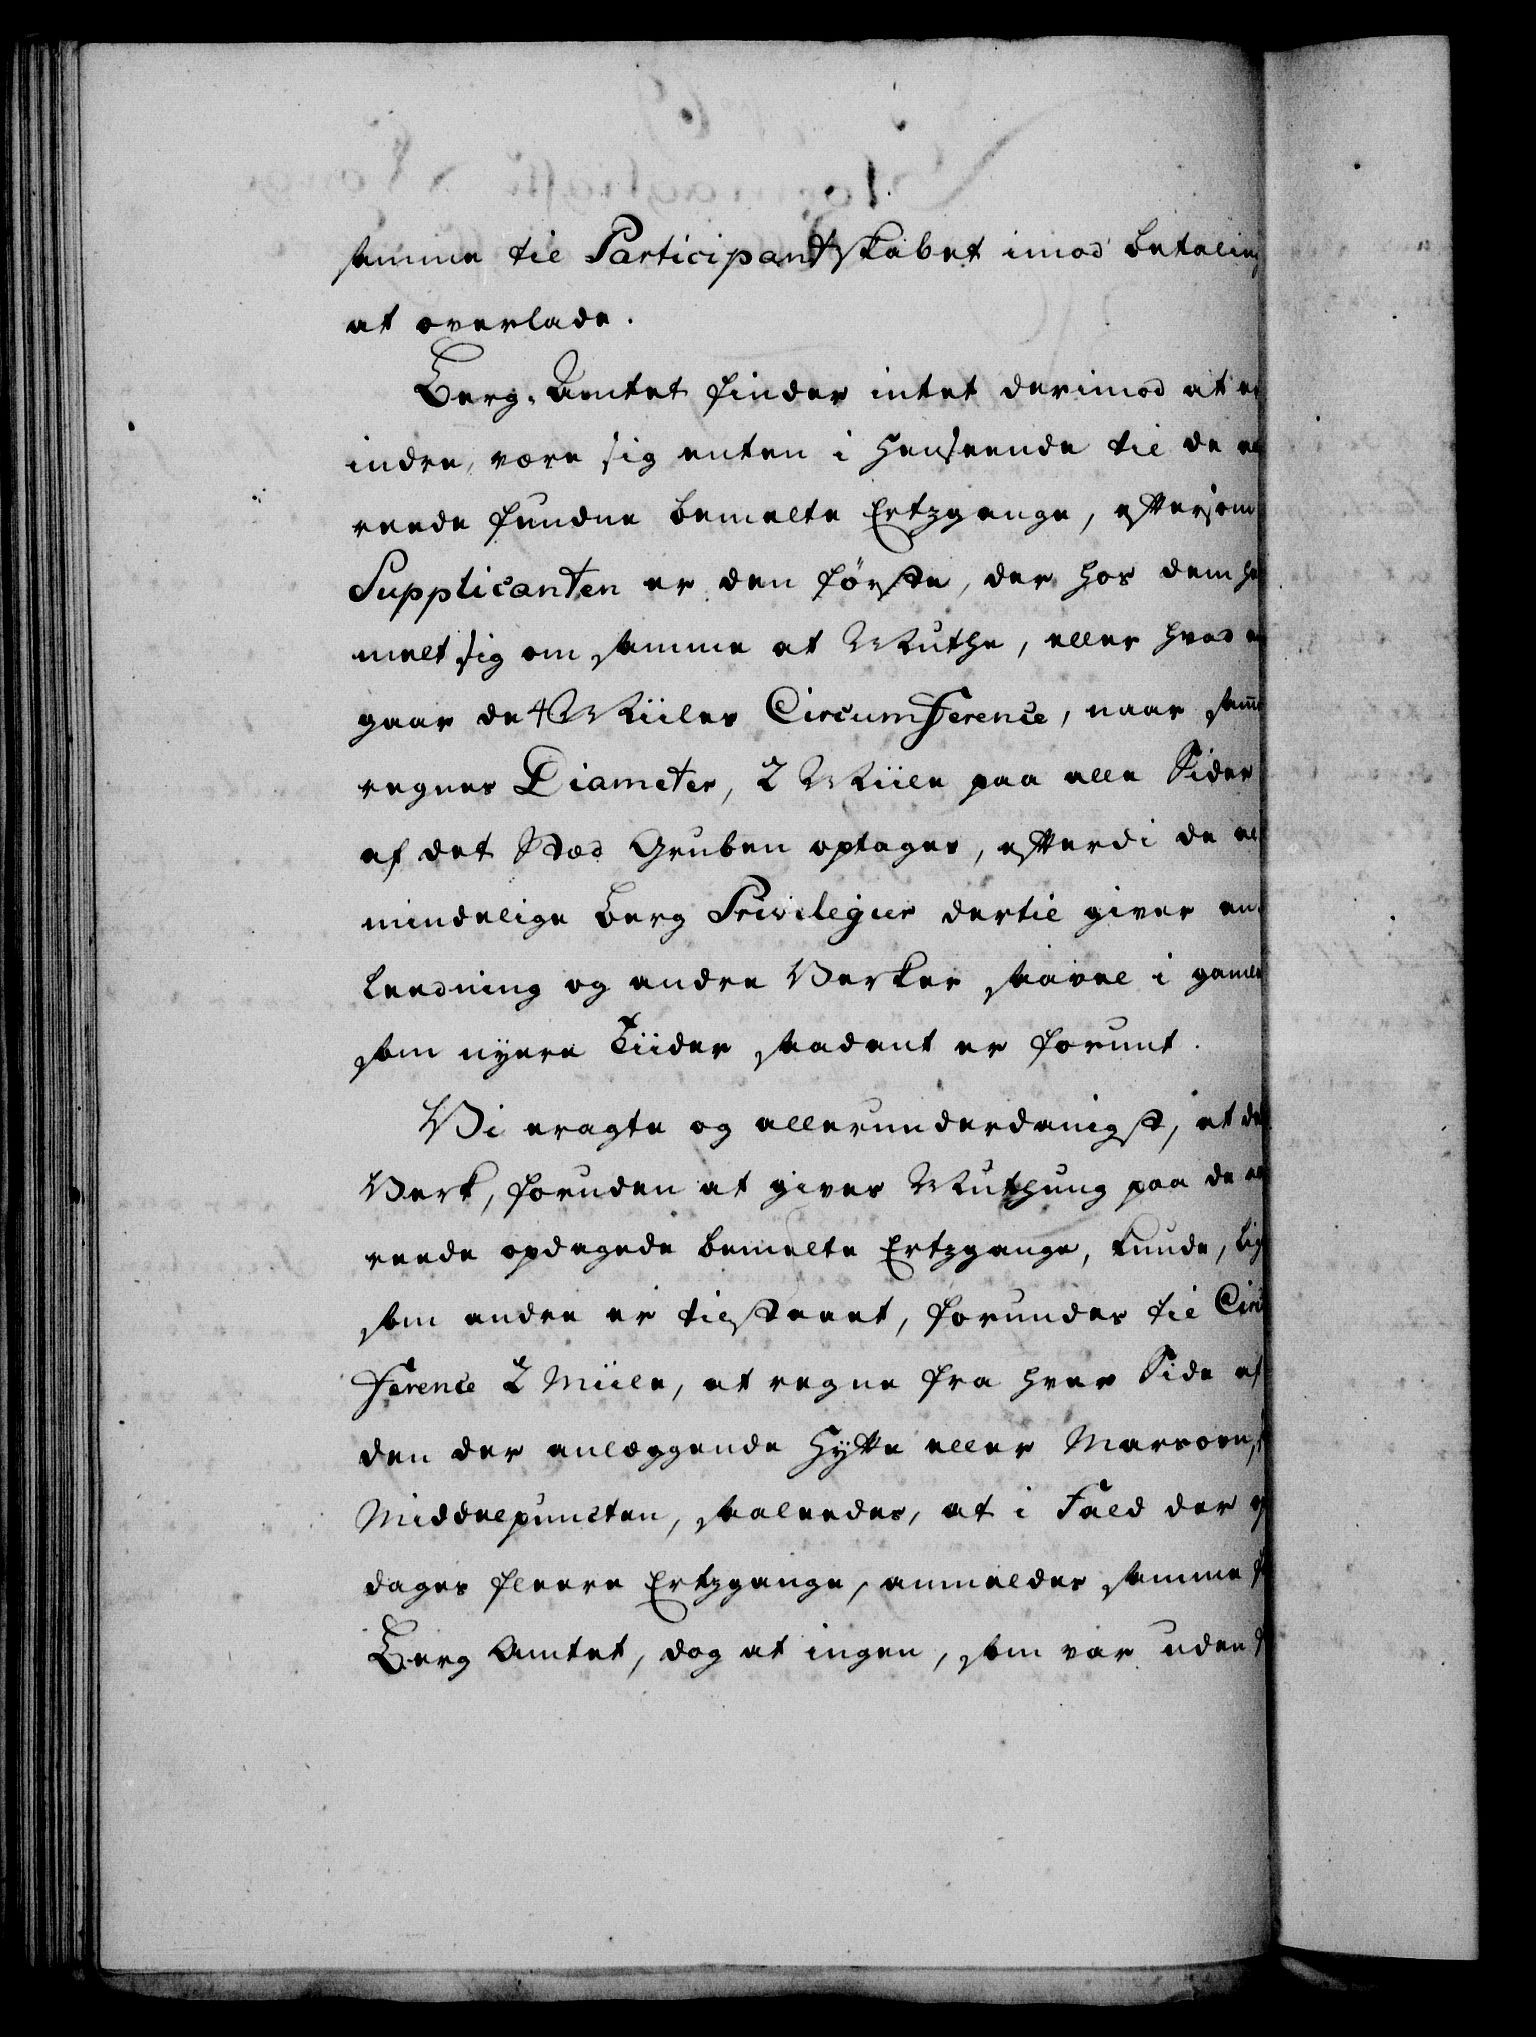 samme til Participantskabet imod betaling
at overlade.
Berg-Amtet finder intet derimod at er
indre, være sig enten i Henseende til de al
reede fundne bemelte Ertzgange, eftersom
Supplicanten er den første, der hos dem ha
melt sig om samme at Muthe, eller hvad an
gaar de 4 Miiles Circumference, naar samme
regnes Diameter, 2 Miile paa alle Sider
af det Stæd Gruben optages, efterdi de al
mindelige Berg Privilegier dertil giver an
leedning og andre Verker saavel i gamle
som nyere Tiider saadant er forunt.
Vi eragte og allerunderdanigst, at de
Verk, foruden at gives Muthung paa de al
reede opdagede bemelte Ertzgange, kunde, lig
som andre er tilstaaet, forundes til Circu
ference 2 Miile, at regne fra hver Side af
den der anlæggende Hytte eller Marcoens
Middelpuncten, saaleedes, at i Fald der op
dages fleere Ertzgange, anmeldes samme f
Berg Amtet, dog at ingen, som var uden f